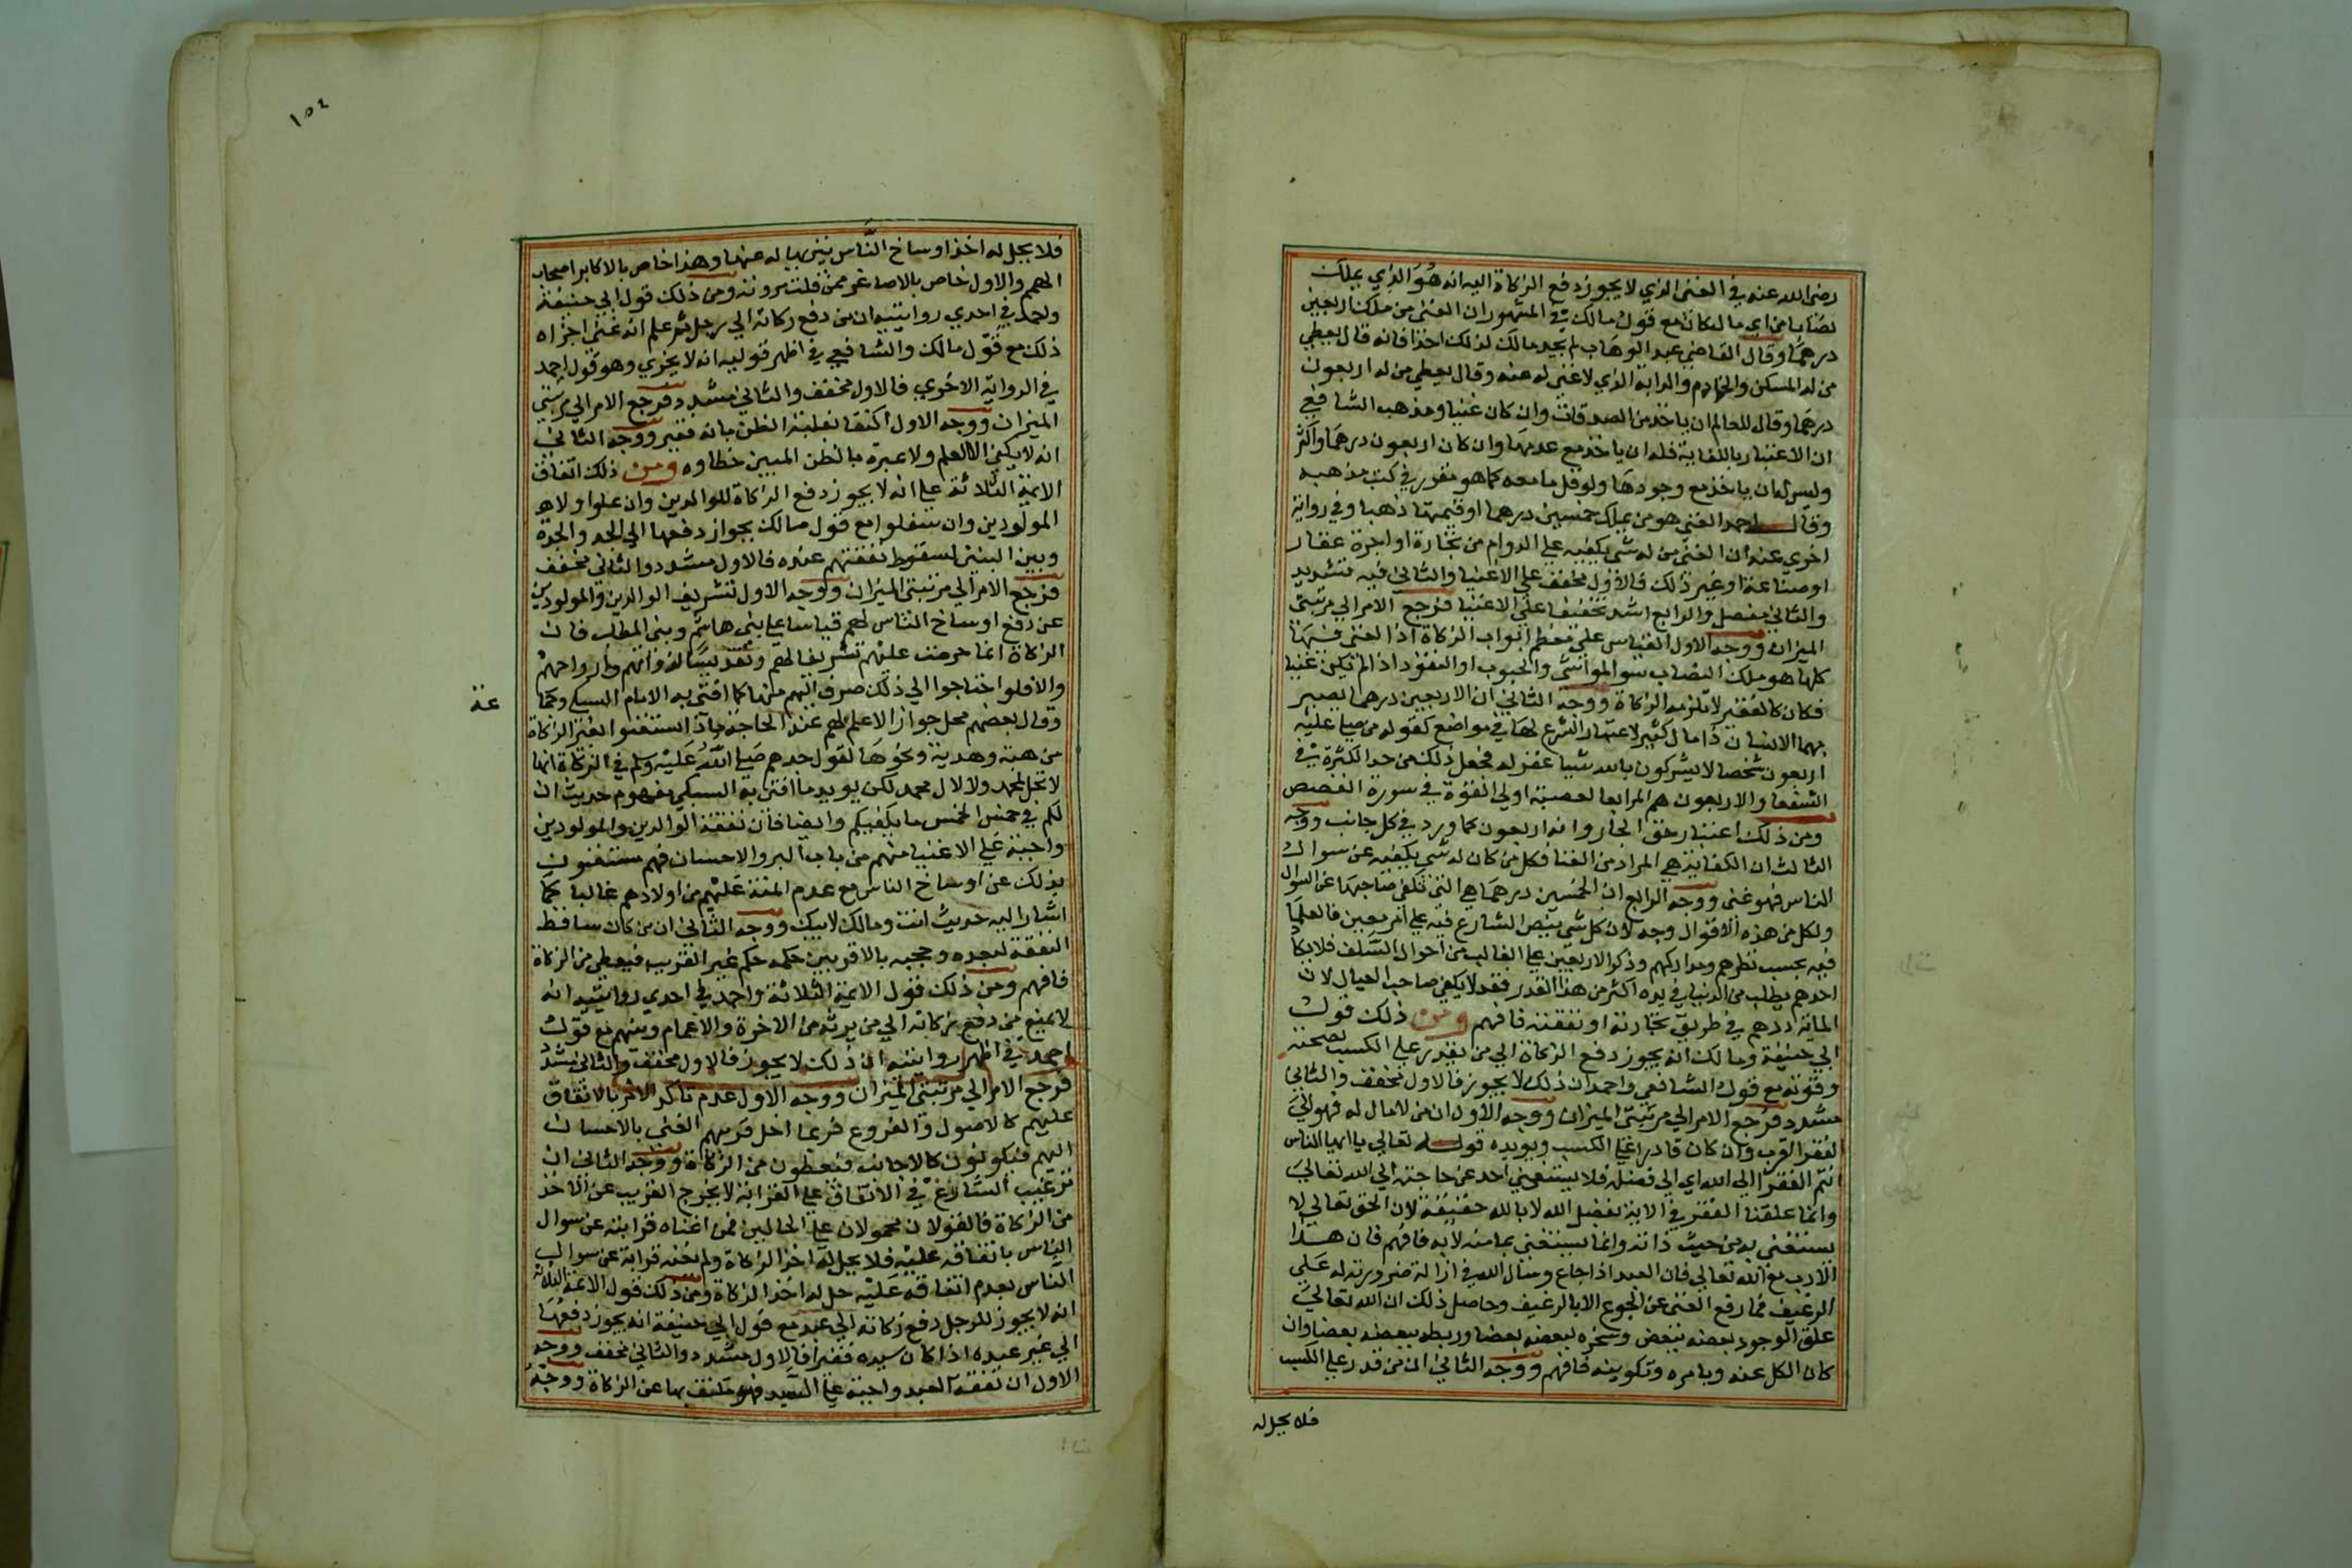 رضي الله عنه في الغني الذي لا يجوز دفع الزكاة اليه انه هو الذي يملك
نصابا من اي مال كان مع قول مالك في المشهور ان الغني من ملك اربعين
درهما وقال القاضي عبد الوهاب لم يحد مالك لذلك احدا فانه قال يعطي
من له المسكن والخادم والدابة الذي لا غني له عنه وقال يعطي من له اربعون
درهما وقال للعالم ان ياخذ من الصدقات وان كان غنيا ومذهب الشافعي
ان الاعتبار بالكفاية فله ان ياخذ مع عدمها وان كان اربعون درهما واكثر
وليس له ان ياخذ مع وجودها ولو قل ما معه كما هو مقرر في كتب مذهبه
وقال احمد الغني هو من يملك خمسين درهما او قيمتها ذهبا وفي رواية
اخري عنه ان الغني من له شي يكفيه علي الدوام من تجارة او اجرة عقار
او صناعة او غير ذلك فالاول مخفف علي الاغنيا والثاني فيه تشديد
والثالث مفصل والرابع اشد تخفيفا علي الاغنيا فرجع الامر الي مرتبتي
الميزان ووجه الاول القياس علي معظم ابواب الزكاة اذ الغني فيها
كلها هو ملك النصاب سوا المواشي والحبوب او النقود اذا لم يكن غنيا
فكان كالفقير لا تلزمه الزكاة ووجه الثاني ان الاربعين درهما يصير
بهما الانسان ذا مال كثير لاعتبار الشرع لها في مواضع كقوله من صلي عليه
اربعون شخصا لا يشركون بالله شيا غفر له فجعل ذلك من حد الكثرة في
الشفعا والاربعون هم المراد بالعصبة اولي القوة في سورة القصص
ومن ذلك اعتبار حق الجار وانه اربعون كما ورد في كل جانب ووجه
الثالث ان الكفاية هي المراد من الغنا فكل من كان له شي يكفيه عن سوال
الناس فهو غني ووجه الرابع ان الخمسين درهما هي التي تكفي صاحبها عن السوال
ولكل من هذه الاقوال وجه لان كل شي لم ينص الشارع فيه علي امر معين فالعلما
فيه بحسب نظرهم ومداركهم وذكر الاربعين علي الغالب من احوال السلف فلا يكاد
احدهم يطلب من الدنيا في يده اكثر من هذا القدر فقد لا يكفي صاحب العيال لان
الماية درهم في طريق تجارته او نفقته فافهم ومن ذلك قول
ابي حنيفة ومالك انه يجوز دفع الزكاة الي من يقدر علي الكسب لصحته
وقوته مع قول الشافعي واحمد ان ذلك لا يجوز فالاول مخفف والثاني
مشدد فرجع الامر الي مرتبتي الميزان ووجه الاول ان من لا مال له فهو الي
لفقر القرب وان كان قادرا علي الكسب ويويده قوله تعالي يا ايها الناس
انتم الفقرا الي الله اي الي فضله فلا يستغني احد عن حاجته الي الله تعالي
وانما علقنا الفقر في الاية بفضل الله لا بالله حقيقة لان الحق تعالي لا
يستغني به من حيث ذاته وانما يستغني بما منه لا به فافهم فان هذا
الادب مع الله تعالي فان العبد اذا جاع وسال الله في ازالة ضرورته له علي
الرغيف فما رفع الغني عن الجوع الا بالرغيف وحاصل ذلك ان الله تعالي
علق الوجود بعضه ببعض وسخره لبعضه بعضا وربطه ببعضه بعضا وان
كان الكل عنه وبامره وتكوينه فافهم ووجه الثاني ان من قدر علي الكسب
فلا يحل له
١٥٤
فلا يحل له اخذ اوساخ الناس ينبني بباله عنها وهذا خاص بالاكابر اصحاب
الهمم والاول خاص بالاصاغر ممن قلت مروته ومن ذلك قول ابي حنيفة
واحمد في احدي روايتيه ان من دفع زكاته الي رجل ثم علم انه غني اجزاه
ذلك مع قول مالك والشافعي في اظهر قوليه انه لا يجزي وهو قول احمد
في الرواية الاخري فالاول مخفف والثاني مشدد فرجع الامر الي مرتبتي
الميزان ووجه الاول اكتفا بغلبة الظن بانه فقير ووجه الثاني
انه لا يكفي الا العلم ولا عبرة بالظن المبين خطاوه ومن ذلك اتفاق
الايمة الثلاثة علي انه لا يجوز دفع الزكاة للوالدين وان علوا ولا
المولودين وان سفلوا مع قول مالك بجواز دفعها الي الجد والجدة
وبين البنين لسقوط نفقتهم عنده فالاول مشدد والثاني مخفف
فرجع الامر الي مرتبتي الميزان ووجه الاول تشريف الوالدين والمولودين
عن دفع اوساخ الناس لهم قياسا علي بني هاشم وبني المطلب فان
الزكاة انما حرمت عليهم تشريفا لهم وتقديسا لذواتهم وارواحهم
والا فلو احتاجوا الي ذلك صرف اليهم منها كما افتي به الامام السبكي
عنه
وقال بعضهم محل جواز الاعطا لهم عند الحاجة ما اذا استغنوا بغير الزكاة
من هبة وهدية ونحوها لقول جدهم صلي الله عليه وسلم في الزكاة انها
لا تحل لمحمد ولا لال محمد لكن يويد ما افتي به السبكي مفهوم حديث ان
لكم في خمس الخمس ما يكفيكم وايضا فان نفقة الوالدين والمولودين
واجبة علي الاغنيا منهم من باب البر والاحسان فهم مستغنون
بذلك عن اوساخ الناس مع عدم المنة عليهم من اولادهم غالبا كما
اشار اليه حديث انت ومالك لابيك ووجه الثاني ان من كان ساقط
النفقة لبعده وحجبه بالاقربين حكمه حكم غير القريب فيعطي من الزكاة
فافهم ومن ذلك قول الايمة الثلاثة واحمد في احدي روايتيه انه
لا يمنع من دفع زكاته الي من يرثه من الاخوة والاعمام وبنيهم مع قول
احمد في اظهر روايتيه ان ذلك لا يجوز فالاول مخفف والثاني مشدد
فرجع الامر الي مرتبتي الميزان ووجه الاول عدم تاكد الامر بالانفاق
عليهم كالاصول والفروع فربما اخل قريبهم الغني بالاحسان
اليهم فيكونون كالاجانب فيعطون من الزكاة ووجه الثاني ان
ترغيب الشارع في الانفاق علي القرابة لا يخرج القريب عن الاخذ
من الزكاة فالقولان محمولان علي الحالين فمن اغناه قرابته عن سوال
الناس بانفاقه عليه فلا يحل له اخذ الزكاة ولم تغنه قرابة عن سوال
الناس بعدم انفاقه عليه حل له اخذ الزكاة ومن ذلك قول الايمة الثلاثة
انه لا يجوز للرجل دفع زكاته الي عبد مع قول ابي حنيفة انه يجوز دفعها
الي غير عبده اذا كان سيده فقيرا فالاول مشدد والثاني مخفف ووجه
الاول ان نفقة العبد واجبة علي السيد فهو مكتف بها عن الزكاة ووجه